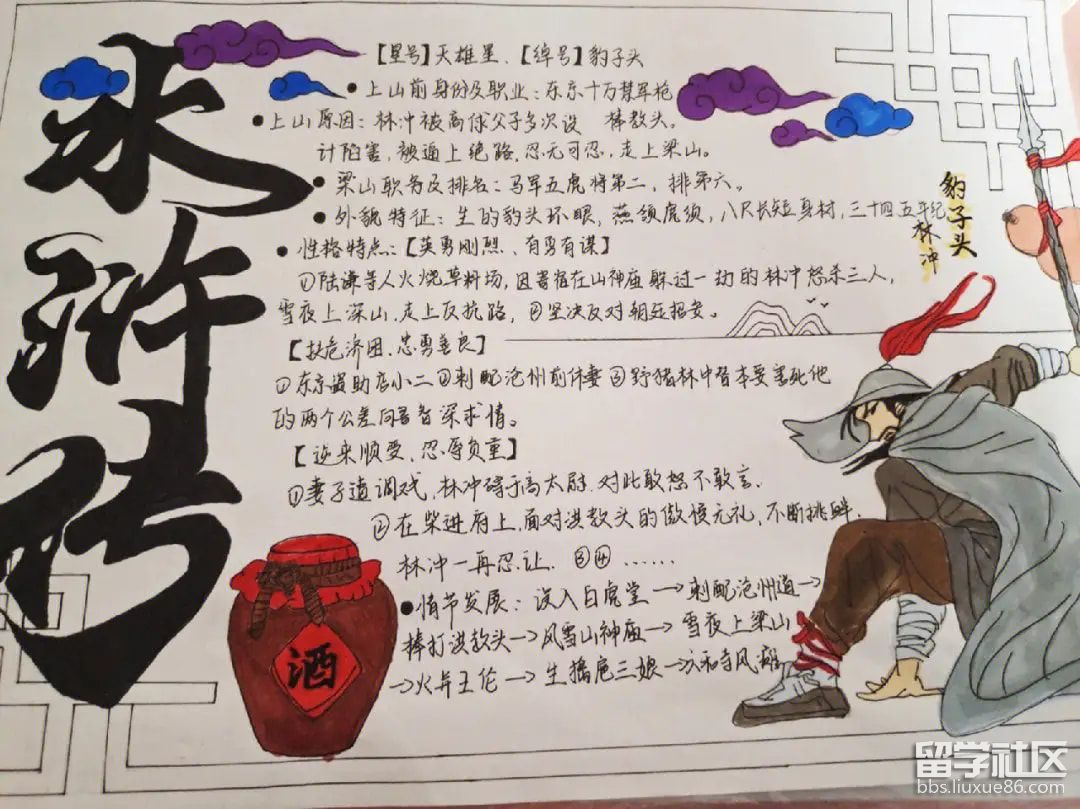 水浒传
【星号】天雄星、【绰号】豹子头
●上山前身份及职业:东京十万禁军枪
●上山原因:林冲被高俅父子多次设 棒教头。
计陷害,被逼上绝路,忍无可忍,走上梁山。
●梁山职务及排名:马军五虎将第二,排第六。
●外貌特征:生的豹头环眼,燕颔虎须,八尺长短身材,三十四五年纪
豹子头
林冲
●性格特点:【英勇刚烈、有勇有谋】
①陆谦等人火烧草料场,因寄宿在山神庙躲过一劫的林冲怒杀三人,
雪夜上深山,走上反抗路,②坚决反对朝廷招安。
【扶危济困,忠勇善良】
①东京资助店小二②刺配沧州前休妻③野猪林中替本要害死他
的两个公差向鲁智深求情。
【逆来顺受,忍辱负重】
①妻子遭调戏,林冲碍于高太尉.对此敢怒不敢言.
②在柴进府上,面对洪教头的傲慢无礼,不断挑衅.
林冲一再忍让. ③④……
●情节发展:误入白虎堂→刺配沧州道→
棒打洪教头→风雪山神庙→雪夜上梁山
→火并王伦→生擒扈三娘→六和寺风瘫
酒
留学社区
bbs.liuxue86.com